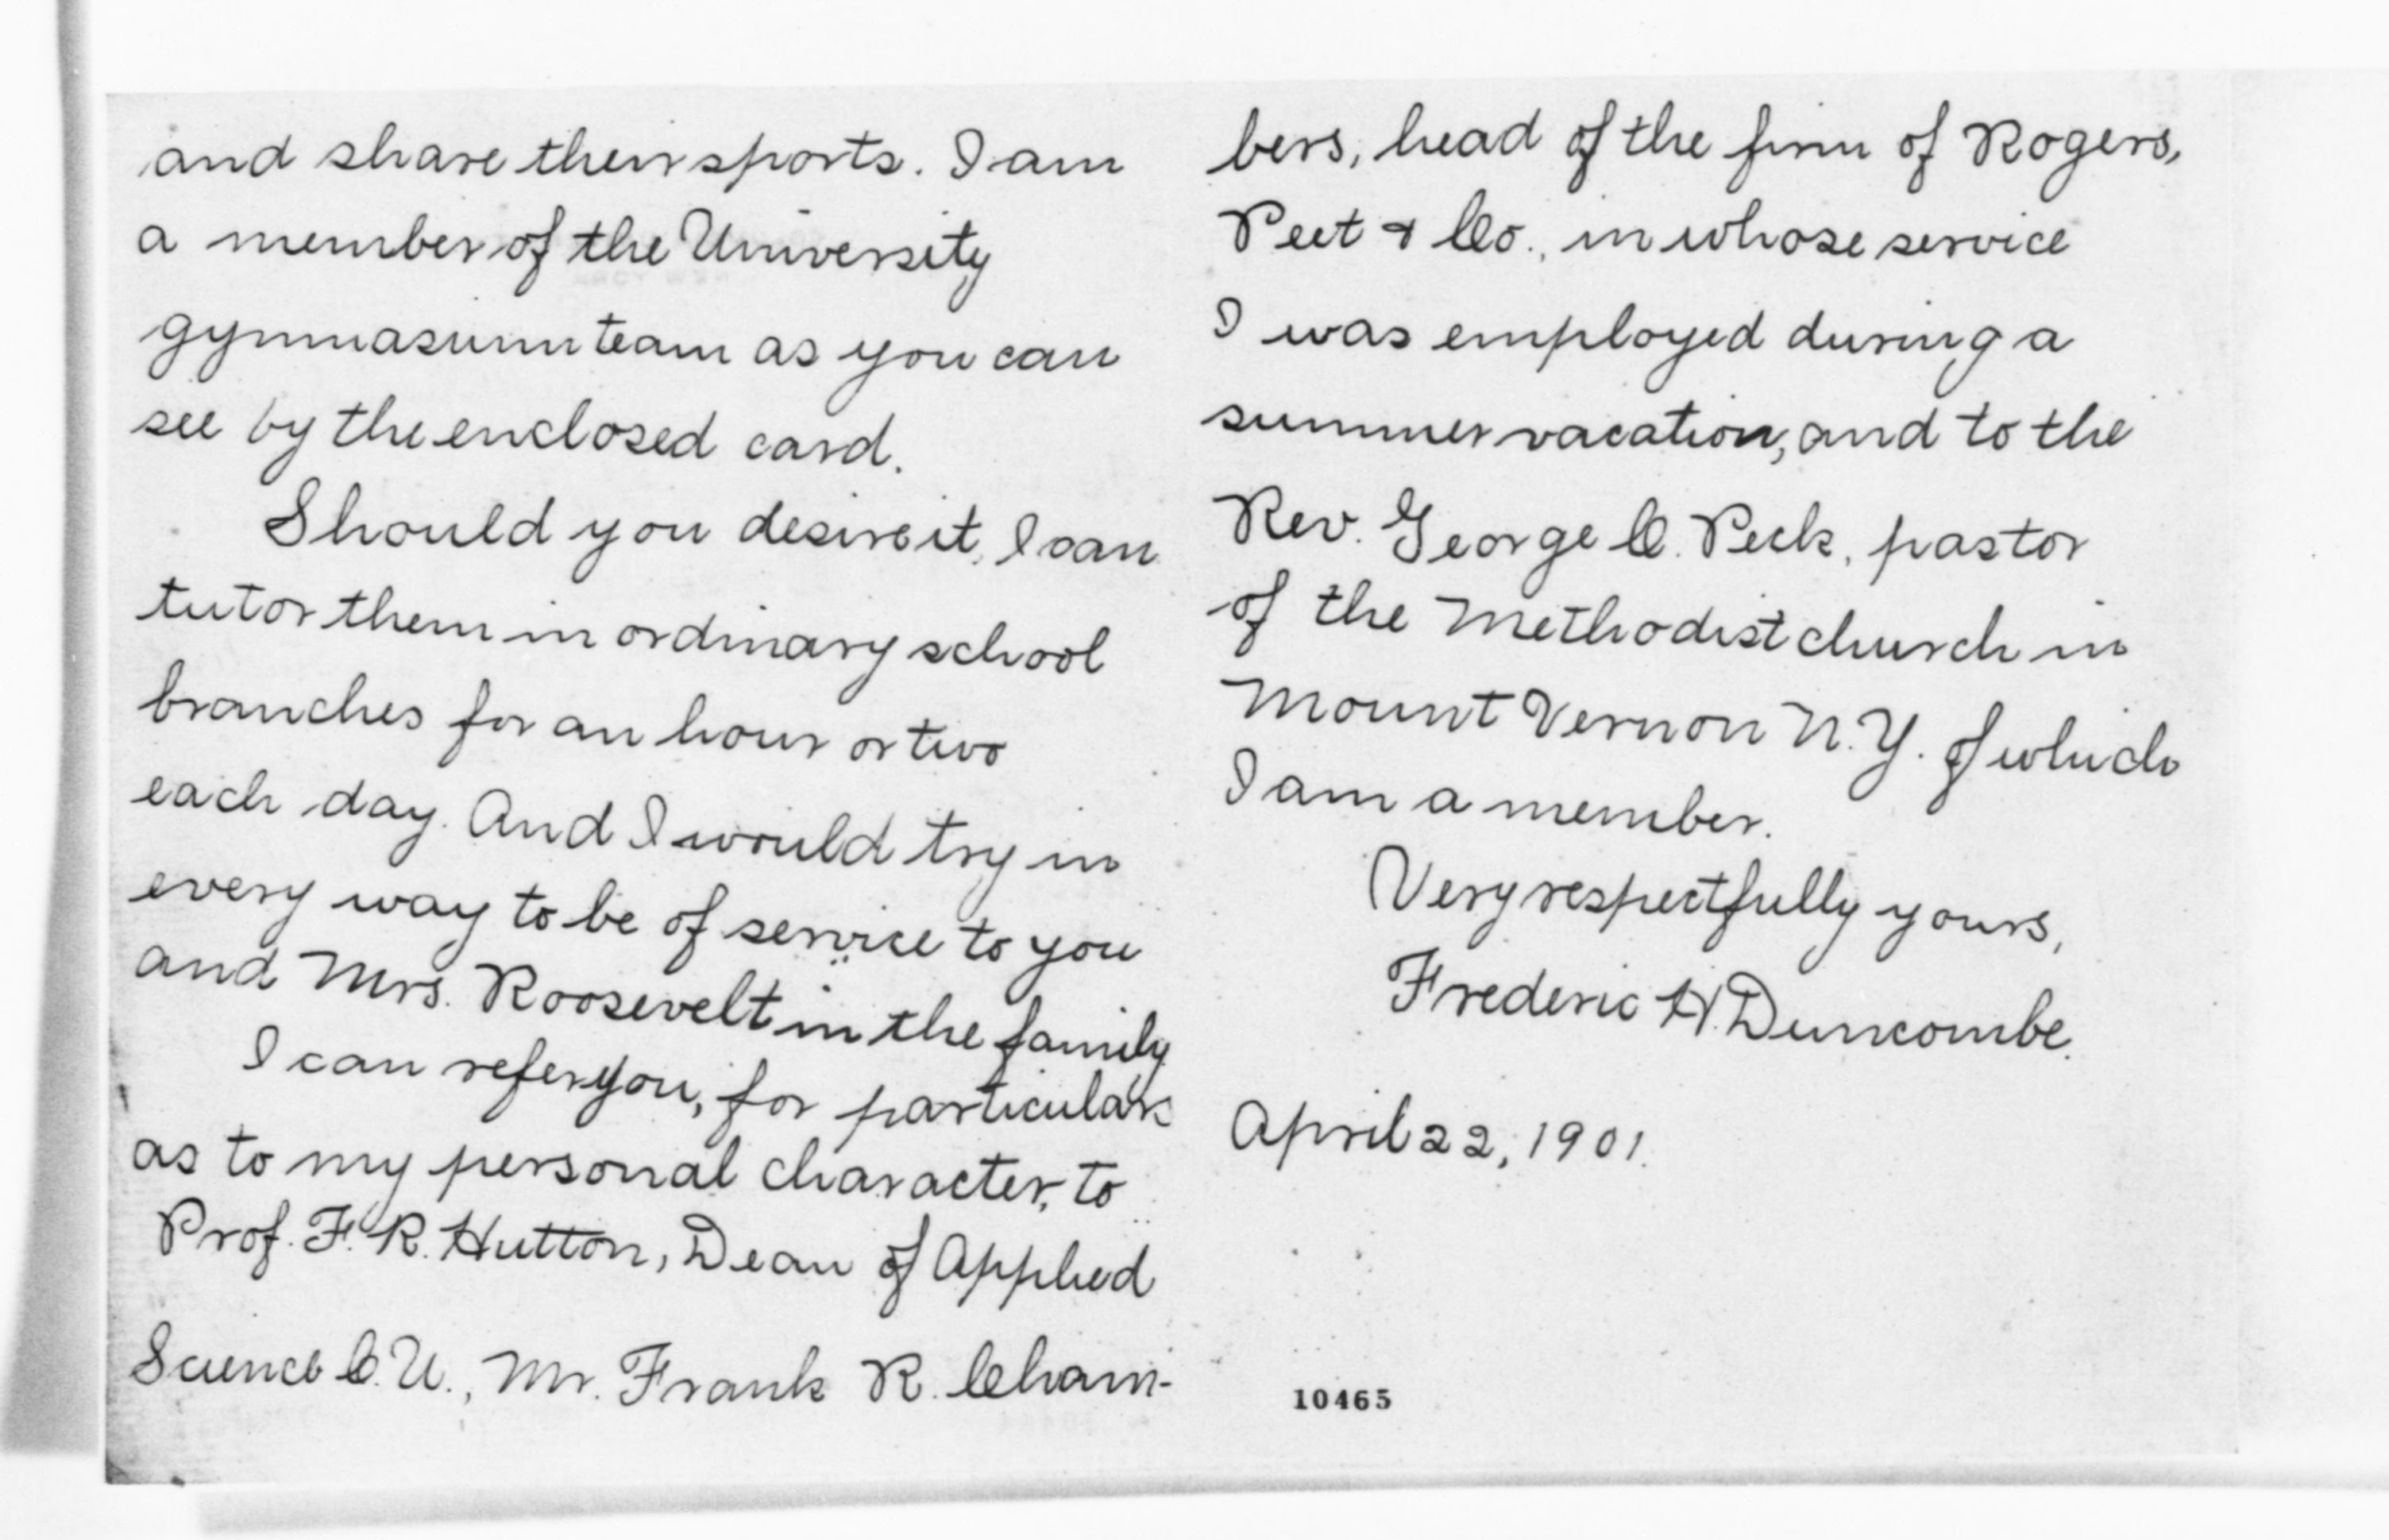 and share their sports. I am
a member of the University
gymnasium team as you can
see by the enclosed card.
Should you desire it, I can
tutor them in ordinary school
branches for an hour or two
each day. And I would try in
every way to be of service to you
and Mrs. Roosevelt in the family.
I can refer you, for particulars
as to my personal character, to
Prof. F. R. Hutton, Dean of Applied
Science C. U., Mr. Frank R. Cham-
bers, head of the firm of Rogers,
Peet & Co., in whose service
I was employed during a
summer vacation, and to the
Rev. George C. Peck, pastor
of the Methodist church in
Mount Vernon N. Y. of which
I am a member.
Very respectfully yours,
Frederic H. Duncombe.
April 22, 1901.
10465